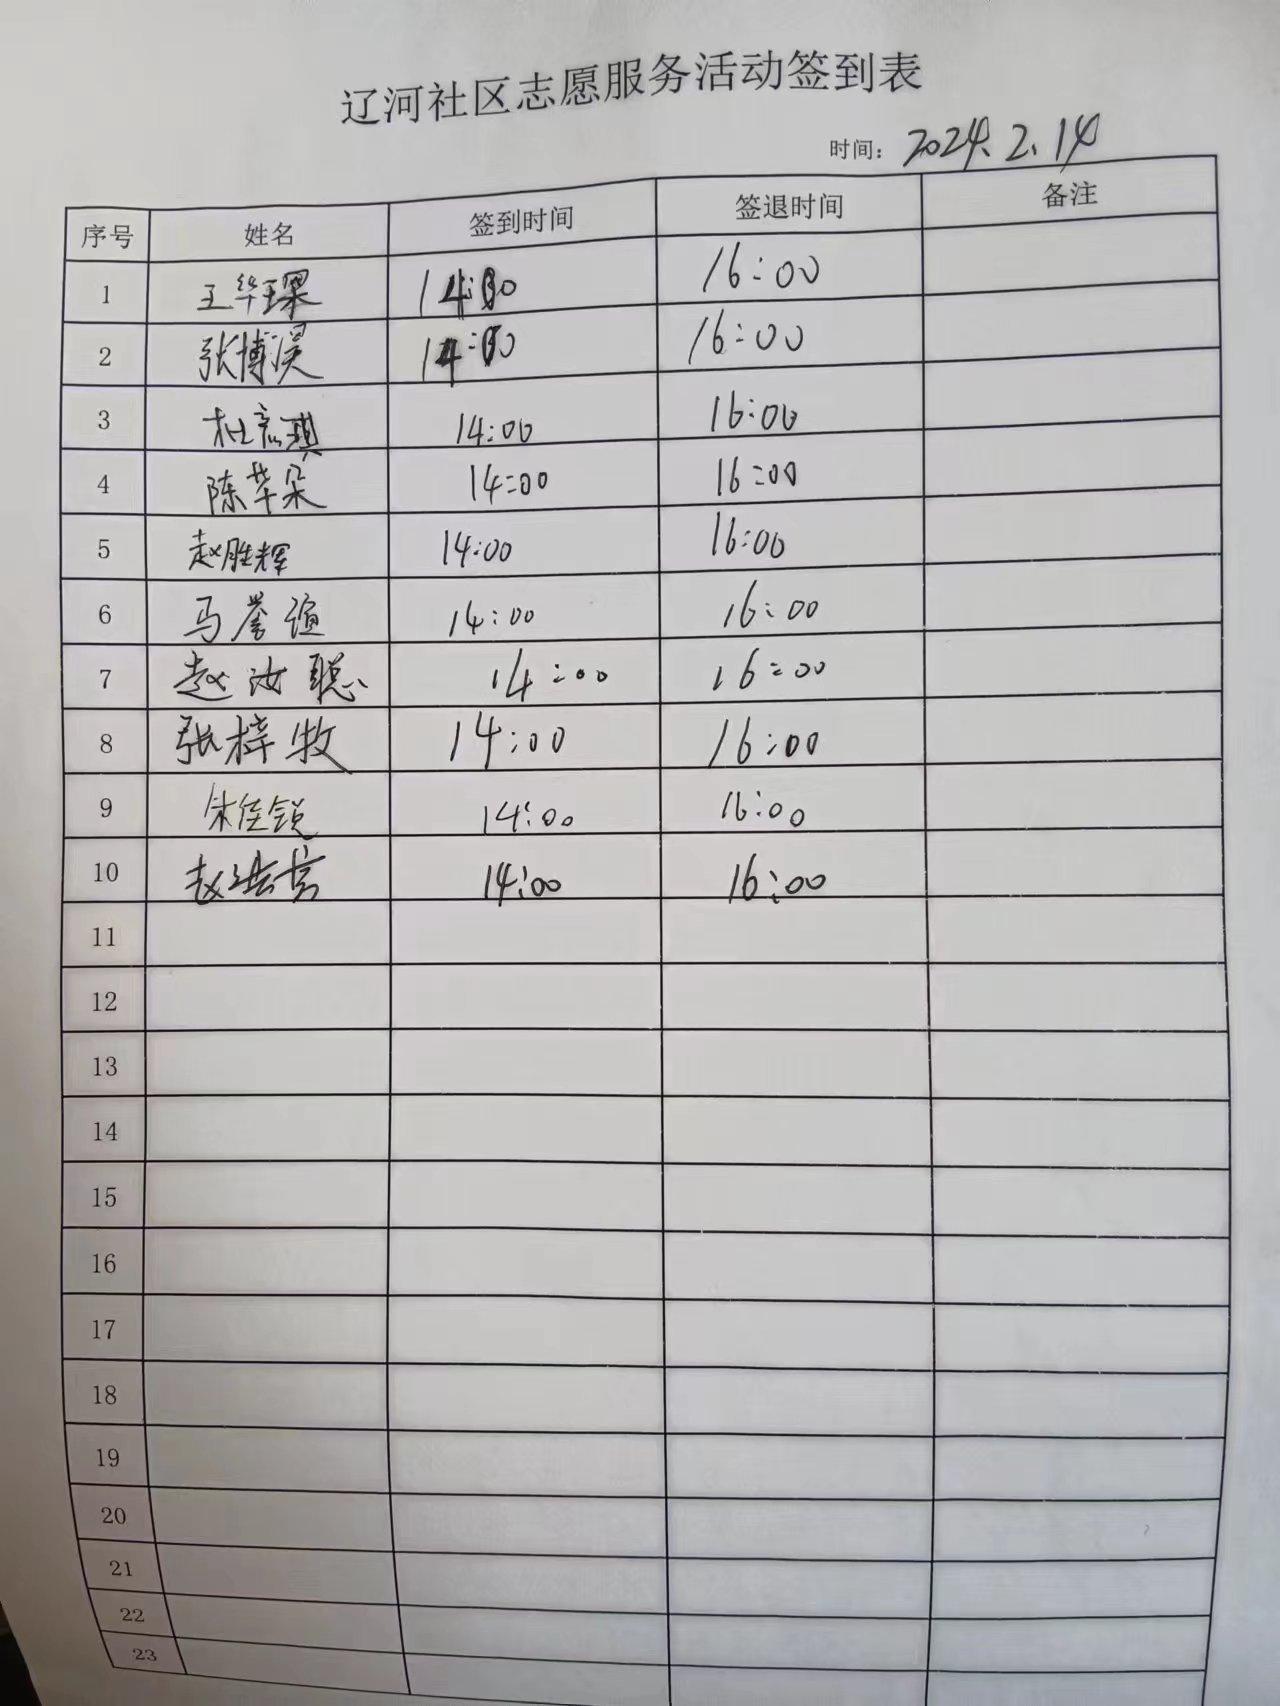 辽河社区志愿服务活动签到表
时间：2024.2.14
序号 姓名 签到时间 签退时间 备注
1 王华璟 14:00 16:00
2 张博淏 14:00 16:00
3 杜彦琪 14:00 16:00
4 陈华朵 14:00 16:00
5 赵胜辉 14:00 16:00
6 马誉谊 14:00 16:00
7 赵汝聪 14:00 16:00
8 张梓牧 14:00 16:00
9 14:00 16:00
10 14:00 16:00
11
12
13
14
15
16
17
18
19
20
21
22
23